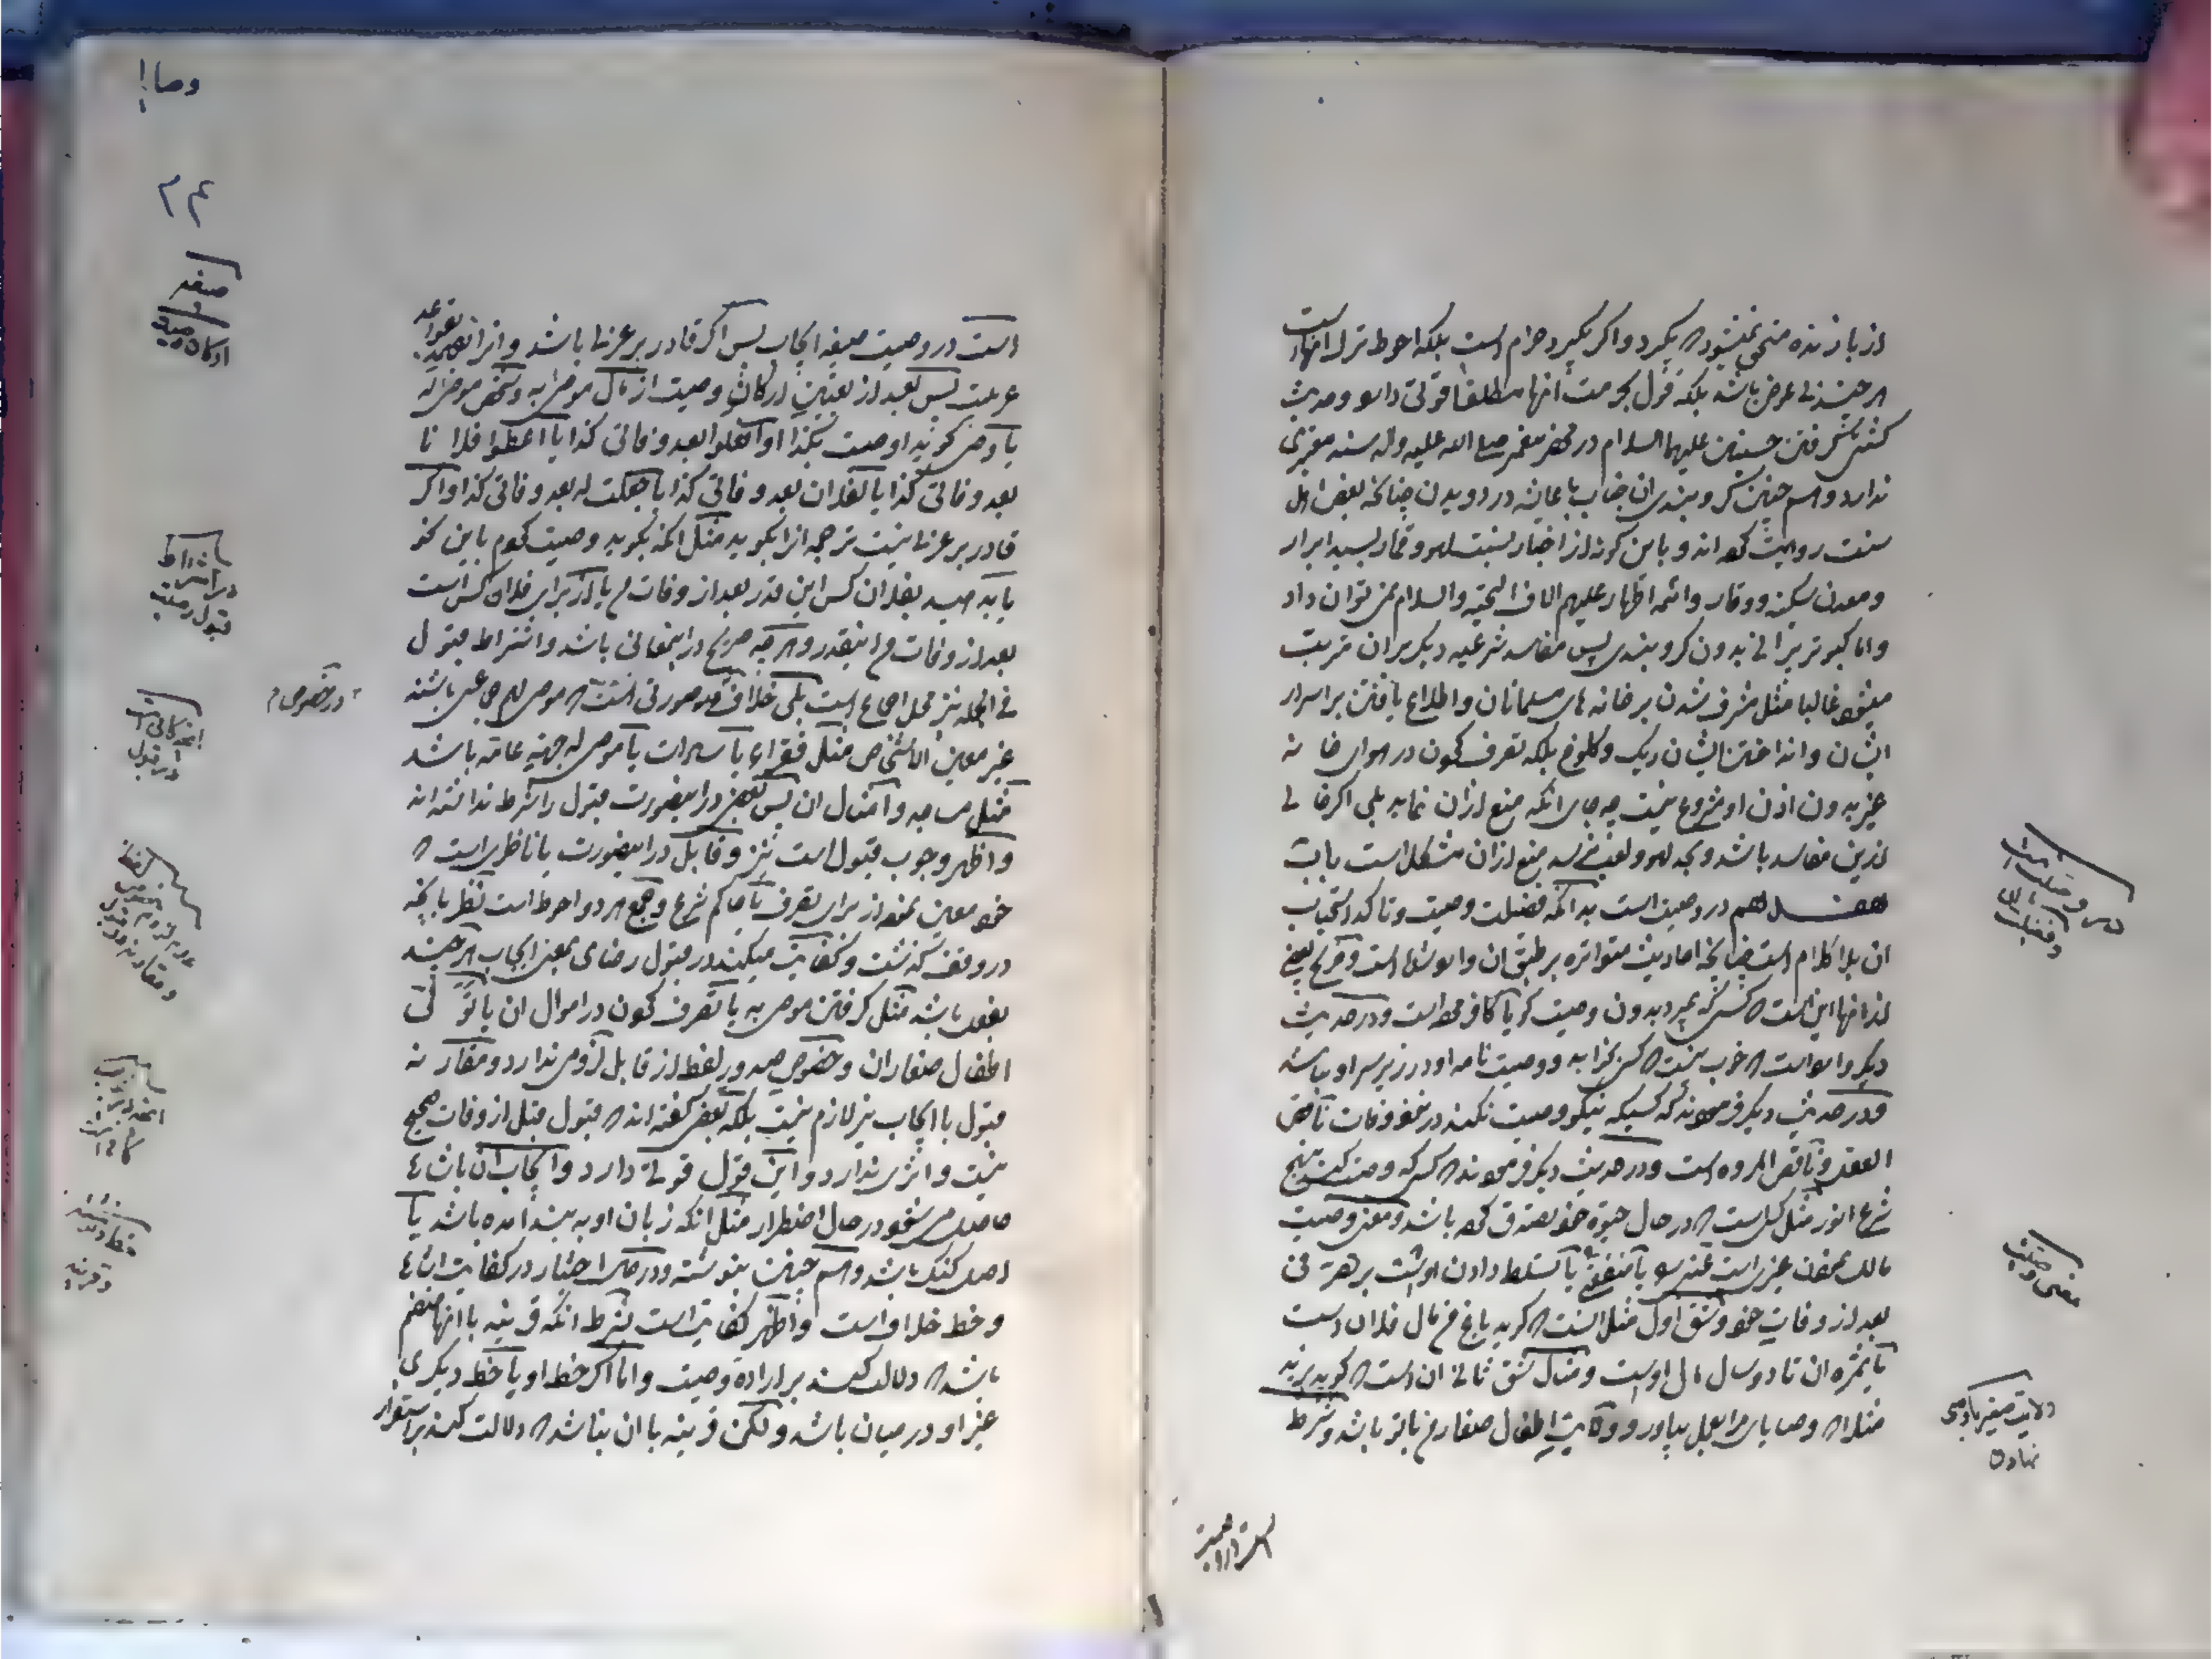 از بازنده منحی نمیشود که بگیرد و اگر بگیرد حرام است بلکه احوط ترک انهاست
هر چند بی عوض باشد بلکه قول بحرمت انها مطلقا قوتی دارد و حدیث
کشتی گرفتن حسنین علیهما السلام در محضر پیغمبر صلی الله علیه و اله سند معتبری
ندارد و هم چنین گرو بندی ان جناب با عایشه در دویدن چنانکه بعض اهل
سنت روایت کرده اند و باین گونه از اخبار نسبت لهو و قمار بسید ابرار
و معدن سکینه و وقار و ائمه اطهار علیهم الاف التحیه و السلام نمی توان داد
و اما کبوتر پرانی بدون گرو بندی پس مفاسد شرعیه دیگر بر ان مترتب
میشود غالبا مثل مشرف شدن بر خانه های مسلمانان و اطلاع یافتن بر اسرار
ایشان و انداختن ایشان ریگ و کلوخ بلکه تصرف کردن در هوای خانه
غیر بدون اذن او مشروع نیست چه جای انکه منع از ان نماید بلی اگر خالی
ازین مفاسد باشد و بحد لهو و لعب نرسد منع از ان مشکل است باب
هفدهم در وصیت است بدانکه فضیلت وصیت و تاکد استحباب
ان بلا کلام است چنانچه احادیث متواتره بر طبق ان وارد شده است و صریح بعضی
از انها این است که کسی که بمیرد بدون وصیت گویا کافر مرده است و در حدیث
دیگر وارد است که خوب نیست که کسی بخوابد و وصیت نامه او در زیر سر او نباشد
و در حدیث دیگر فرموده اند که کسیکه نیکو وصیت نکند در نزد وفات ناقص
العقل و ناقص المروه است و در حدیث دیگر فرموده اند که کسی که وصیت کند بنهج
شرع انور مثل کسی است که در حال حیوة خود تصدق کرده باشد و معنی وصیت
مالک نمودن غیر است عین یا منفعتی یا تسلط دادن اوست بر تصرفی
بعد از وفات خود و شق اول مثل اینست که گوید باغ من مال فلان است
یا ثمره ان تا دو سال مال اوست و مثال شق ثانی ان است که گوید زید
مثلا که وصایای مرا بعمل بیاورد و ولایت اطفال صغار من با تو باشد و شرط
درس فضیلت
معنی وصیت
ولایت صغیر با وصی
نهادن
است در وصیت صیغه ایجاب پس اگر قادر بر عربی باشد و انرا بفهمد بقواعد
عربیت پس بعد از تعیین ارکان وصیت از مال موصی به و شخص موصی له
یا وصی گوید اوصیت بکذا او افعلوا بعد وفاتی کذا یا اعطوا فلانا
بعد وفاتی کذا یا لفلان بعد وفاتی کذا یا جعلت له بعد وفاتی کذا و اگر
قادر بر عربی نیست ترجمه انرا بگوید مثل انکه بگوید وصیت کردم باین نحو
یا بدهید بفلان کس این قدر بعد از وفات من یا از برای فلان کس است
بعد از وفات من اینقدر و هر چه صریح در اینمعنی باشد و اشتراط قبول
فی الجمله نیز محل اجماع است بلی خلاف در صورتی است که موصی لهم جماعتی باشند
غیر معین الاشخاص مثل فقراء یا سادات یا موصی له جهة عامه باشد
مثل مساجد و امثال ان پس بعضی در اینصورت قبول را شرط ندانسته اند
و اظهر وجوب قبول است نیز و قابل در اینصورت یا ناظری است که
خود معین نموده از برای تصرف یا حاکم شرع و جمع هر دو احوط است نظر بانچه
در وقف گذشت و کفایت میکند در قبول رضای بمعنی ایجاب هر چند
بفعل باشد مثل گرفتن موصی به یا تصرف کردن در اموال ان یا تولی
اطفال صغار ان و خصوص صدور لفظ از قابل لزومی ندارد و مقارنه
قبول با ایجاب نیز لازم نیست بلکه بعضی گفته اند که قبول قبل از وفات صحیح
نیست و اثری ندارد و این قول قوتی دارد و ایجاب ان باشاره
حاصل می شود در حال اضطرار مثل انکه زبان او به بند امده باشد یا
اصل گنگ باشد و هم چنین بنوشته و در حال اختیار در کفایت اشاره
و خط خلاف است و اظهر کفایت است بشرط انکه قرینه با انها منضم
باشد که دلالت کند بر اراده وصیت و اما اگر خط او یا خط دیگری
غیر او در میان باشد و لکن قرینه با ان نباشد که دلالت کند بر استقرار
استقرار
وصایا
۲۴
صیغه
و
ارکان وصیت
اشتراط
قبول وصیت
در خصوص